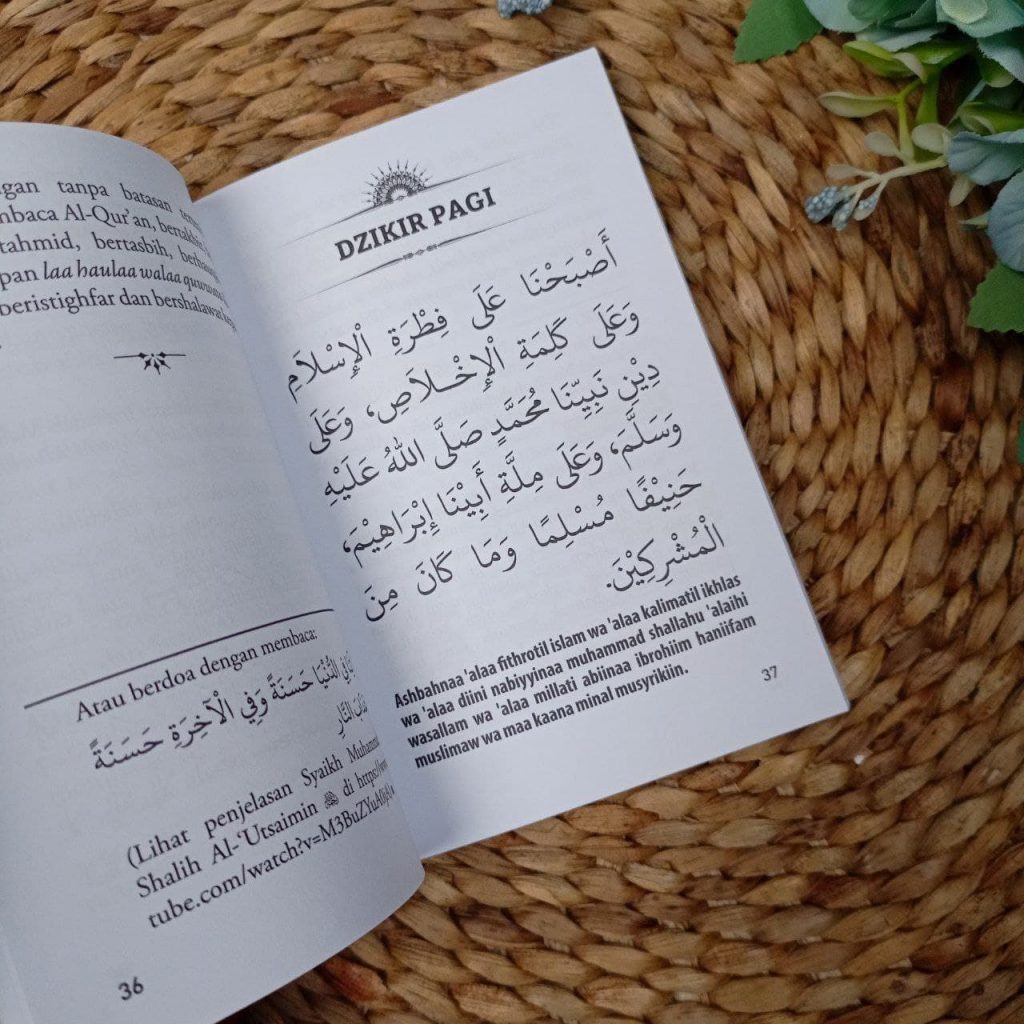 tanpa batasan
Al-Qur'an,
tahmid, bertasbih,
laa haulaa walaa
beristighfar dan bershalawat
Atau berdoa dengan membaca:
الدُّنْيَا حَسَنَةً وَفِي الْآخِرَةِ حَسَنَةً
النَّارِ
(Lihat penjelasan Syaikh
Shalih Al-'Utsaimin di
36
DZIKIR PAGI
أَصْبَحْنَا عَلَى فِطْرَةِ الْإِسْلَامِ
وَعَلَى كَلِمَةِ الْإِخْلَاصِ، وَعَلَى
دِيْنِ نَبِيِّنَا مُحَمَّدٍ صَلَّى اللهُ عَلَيْهِ
وَسَلَّمَ، وَعَلَى مِلَّةِ أَبِيْنَا إِبْرَاهِيْمَ،
حَنِيْفًا مُسْلِمًا وَمَا كَانَ مِنَ
الْمُشْرِكِيْنَ.
Ashbahnaa 'alaa fithrotil islam wa 'alaa kalimatil ikhlas
wa 'alaa diini nabiyyinaa muhammad shallahu 'alaihi
wasallam wa 'alaa millati abiinaa ibrohiim haniifam
muslimaw wa maa kaana minal musyrikiin.
37